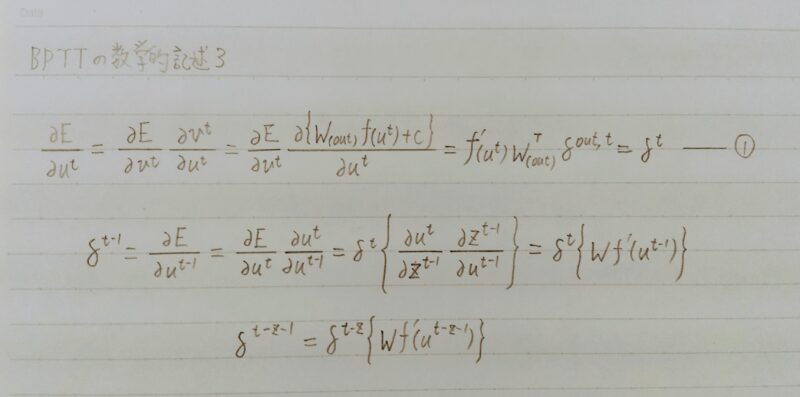 Data
BPTTの数学的記述3
∂E/∂u^t = ∂E/∂v^t ∂v^t/∂u^t = ∂E/∂v^t ∂{W(out) f(u^t)+c}/∂u^t = f'(u^t) W(out)^T δ^{out,t} = δ^t ―― ①
δ^{t-1} = ∂E/∂u^{t-1} = ∂E/∂u^t ∂u^t/∂u^{t-1} = δ^t {∂u^t/∂z^{t-1} ∂z^{t-1}/∂u^{t-1}} = δ^t {W f'(u^{t-1})}
δ^{t-z-1} = δ^{t-z} {W f'(u^{t-z-1})}